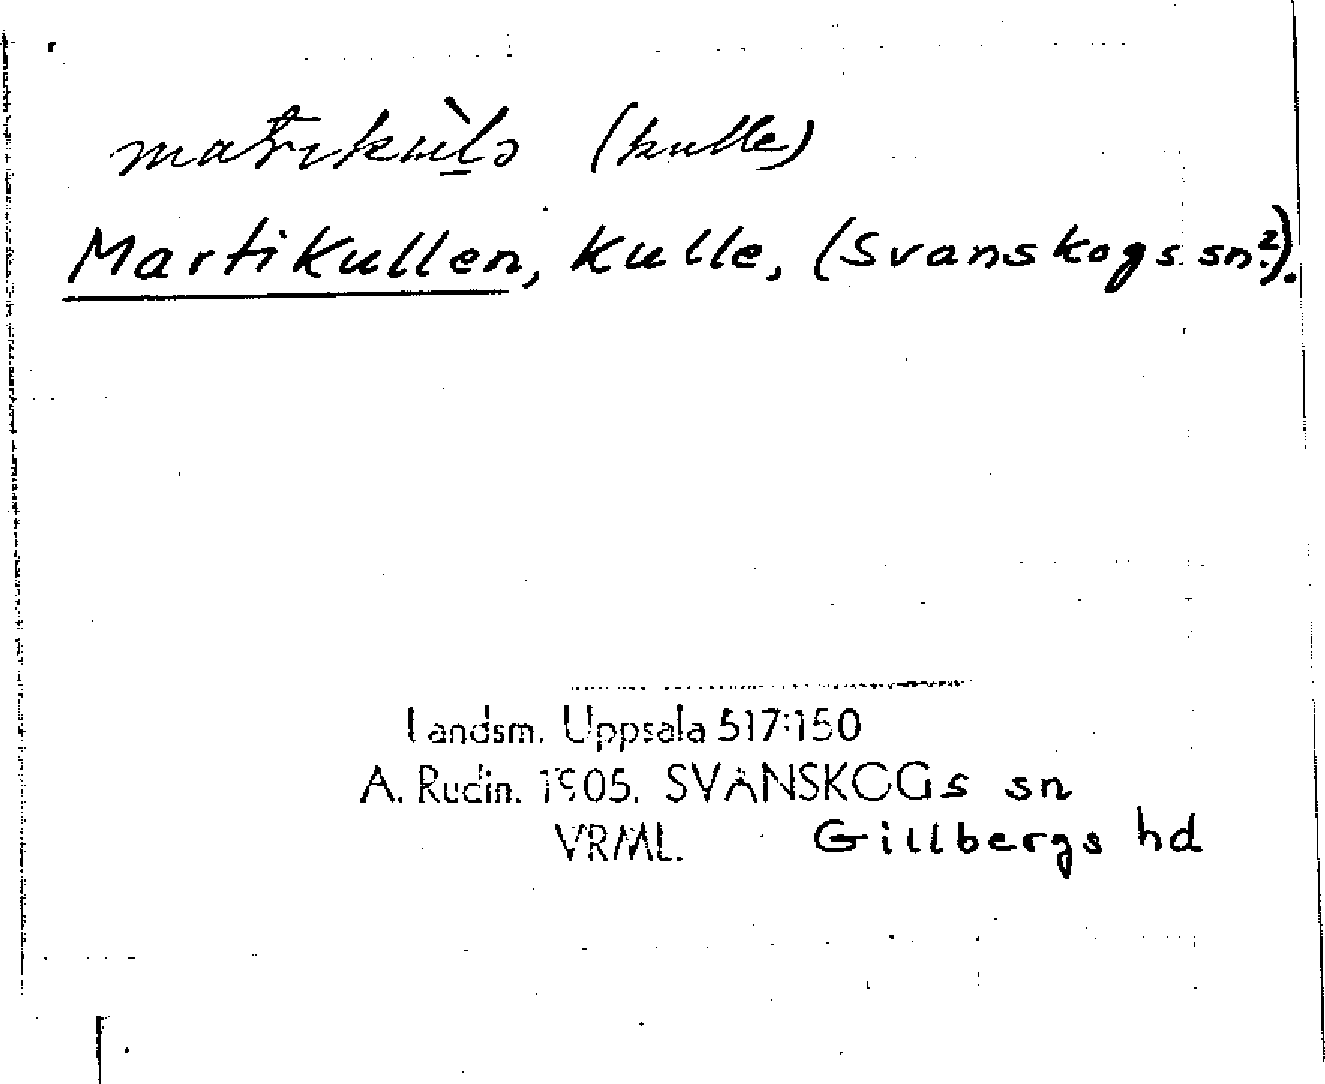 (kulle)
Martikullen, kulle, (Svanskogs sn?).
Landsm. Uppsala 517:150
A. Rudin. 1905. SVANSKOGs sn
VRML. Gillbergs hd